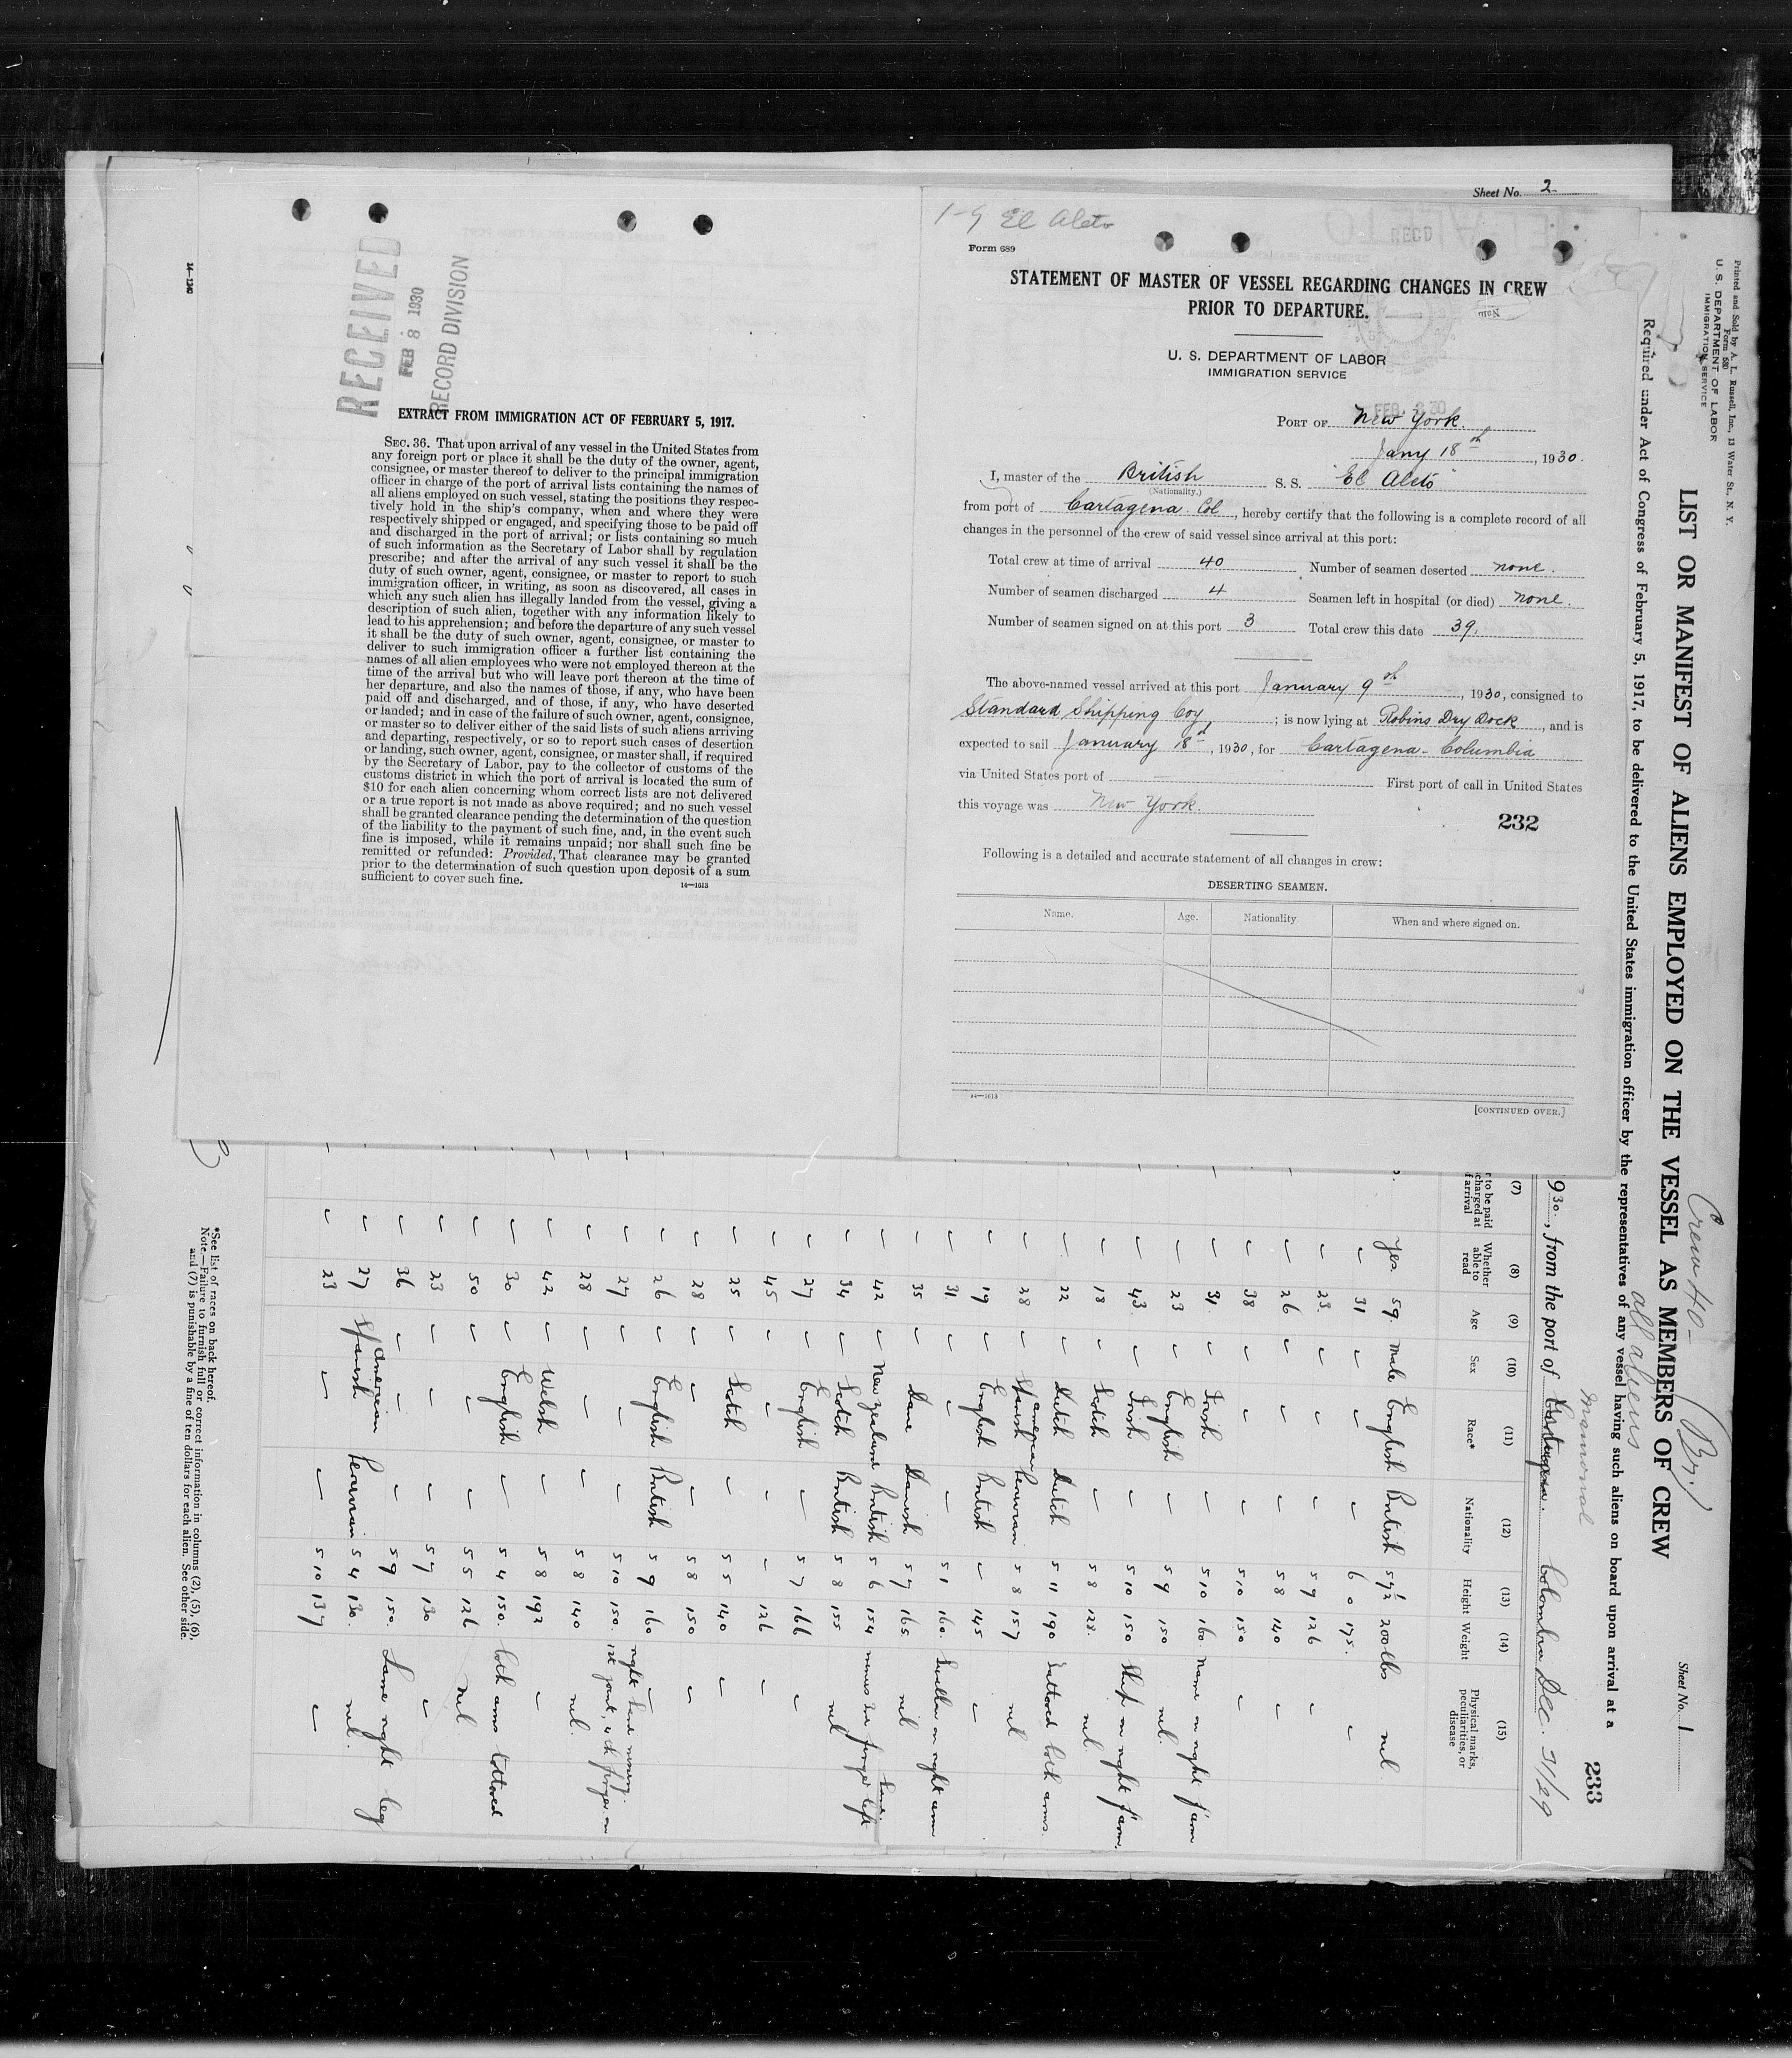 Sheet No. 2
1-9 El Aleto
Form 689
STATEMENT OF MASTER OF VESSEL REGARDING CHANGES IN CREW
PRIOR TO DEPARTURE.
U. S. DEPARTMENT OF LABOR
IMMIGRATION SERVICE
PORT OF New York.
Jany 18th, 1930.
I, master of the British S. S. "El Aleto"
(Nationality.)
from port of Cartagena. Col, hereby certify that the following is a complete record of all
changes in the personnel of the crew of said vessel since arrival at this port:
Total crew at time of arrival 40 Number of seamen deserted none.
Number of seamen discharged 4 Seamen left in hospital (or died) none.
Number of seamen signed on at this port 3 Total crew this date 39.
The above-named vessel arrived at this port January 9th, 1930, consigned to
Standard Shipping Coy, ; is now lying at Robins Dry Dock, and is
expected to sail January 18th, 1930, for Cartagena - Columbia
via United States port of — First port of call in United States
this voyage was New York.
232
Following is a detailed and accurate statement of all changes in crew:
DESERTING SEAMEN.
Name. Age. Nationality. When and where signed on.
14—1613
[CONTINUED OVER.]
14—1240
RECEIVED
FEB 8 1930
RECORD DIVISION
EXTRACT FROM IMMIGRATION ACT OF FEBRUARY 5, 1917.
SEC. 36. That upon arrival of any vessel in the United States from
any foreign port or place it shall be the duty of the owner, agent,
consignee, or master thereof to deliver to the principal immigration
officer in charge of the port of arrival lists containing the names of
all aliens employed on such vessel, stating the positions they respec-
tively hold in the ship's company, when and where they were
respectively shipped or engaged, and specifying those to be paid off
and discharged in the port of arrival; or lists containing so much
of such information as the Secretary of Labor shall by regulation
prescribe; and after the arrival of any such vessel it shall be the
duty of such owner, agent, consignee, or master to report to such
immigration officer, in writing, as soon as discovered, all cases in
which any such alien has illegally landed from the vessel, giving a
description of such alien, together with any information likely to
lead to his apprehension; and before the departure of any such vessel
it shall be the duty of such owner, agent, consignee, or master to
deliver to such immigration officer a further list containing the
names of all alien employees who were not employed thereon at the
time of the arrival but who will leave port thereon at the time of
her departure, and also the names of those, if any, who have been
paid off and discharged, and of those, if any, who have deserted
or landed; and in case of the failure of such owner, agent, consignee,
or master so to deliver either of the said lists of such aliens arriving
and departing, respectively, or so to report such cases of desertion
or landing, such owner, agent, consignee, or master shall, if required
by the Secretary of Labor, pay to the collector of customs of the
customs district in which the port of arrival is located the sum of
$10 for each alien concerning whom correct lists are not delivered
or a true report is not made as above required; and no such vessel
shall be granted clearance pending the determination of the question
of the liability to the payment of such fine, and, in the event such
fine is imposed, while it remains unpaid; nor shall such fine be
remitted or refunded: Provided, That clearance may be granted
prior to the determination of such question upon deposit of a sum
sufficient to cover such fine.
14—1613
Printed and Sold by A. L. Russell, Inc., 13 Water St., N. Y.
Form 680
U. S. DEPARTMENT OF LABOR
IMMIGRATION SERVICE
Crew 40- (Br.)
all aliens
Sheet No. 1
LIST OR MANIFEST OF ALIENS EMPLOYED ON THE VESSEL AS MEMBERS OF CREW
Required under Act of Congress of February 5, 1917, to be delivered to the United States immigration officer by the representatives of any vessel having such aliens on board upon arrival at a
233
Mamonal
930, from the port of Cartagena. Colombia Dec. 31/29
(7) (8) (9) (10) (11) (12) (13) (14) (15)
r to be paid charged at f arrival
Whether able to read
Age
Sex
Race*
Nationality
Height
Weight
Physical marks, peculiarities, or disease
yes 59. Male English British 5 7½ 200 lbs nil
" 31 " " " 6 0 175. "
" 23. " " " 5 9 126 "
" 26 " " " 5 8 140 "
" 38 " " " 5 10 150 "
" 31. " Irish " 5 10 160. Name on right f'arm
" 23 " English " 5 9 150 nil.
" 43. " Irish " 5 10 150 Ship on right f'arm.
" 18 " Scotch " 5 8 128. nil.
" 22 " Dutch Dutch 5 11 190 Tattooed both arms.
" 28 " Spanish American Peruvian 5 8 157 nil
" 19 " English British " 145. "
" 31. " " " 5 1 160. Swallow on right arm
" 35 " Dane Danish 5 7 165. nil
" 42 " New Zealand British 5 6 154 minus 3rd finger left hand
" 34 " Scotch British 5 8 155 nil
" 27 " English " 5 7 166 "
" 45 " " " " 126 "
" 25 " Scotch " 5 5 140 "
" 28 " " " 5 8 150 "
" 26 " English British 5 9 160 "
" 27 " " " 5 10 150. 1st joint, 4th finger on right hand missing.
" 28 " " " 5 8 140 nil.
" 42 " Welsh " 5 8 192 "
" 30 " English " 5 4 150. both arms tattooed
" 50 " " " 5 5 126 nil
" 23 " " " 5 7 130 "
" 36 " " " 5 9 150. Lame right leg
" 27 " Spanish American Peruvian 5 4 130. nil.
" 23 " " " 5 10 137 "
*See list of races on back hereof.
Note.—Failure to furnish full or correct information in columns (2), (5), (6),
and (7) is punishable by a fine of ten dollars for each alien. See other side.